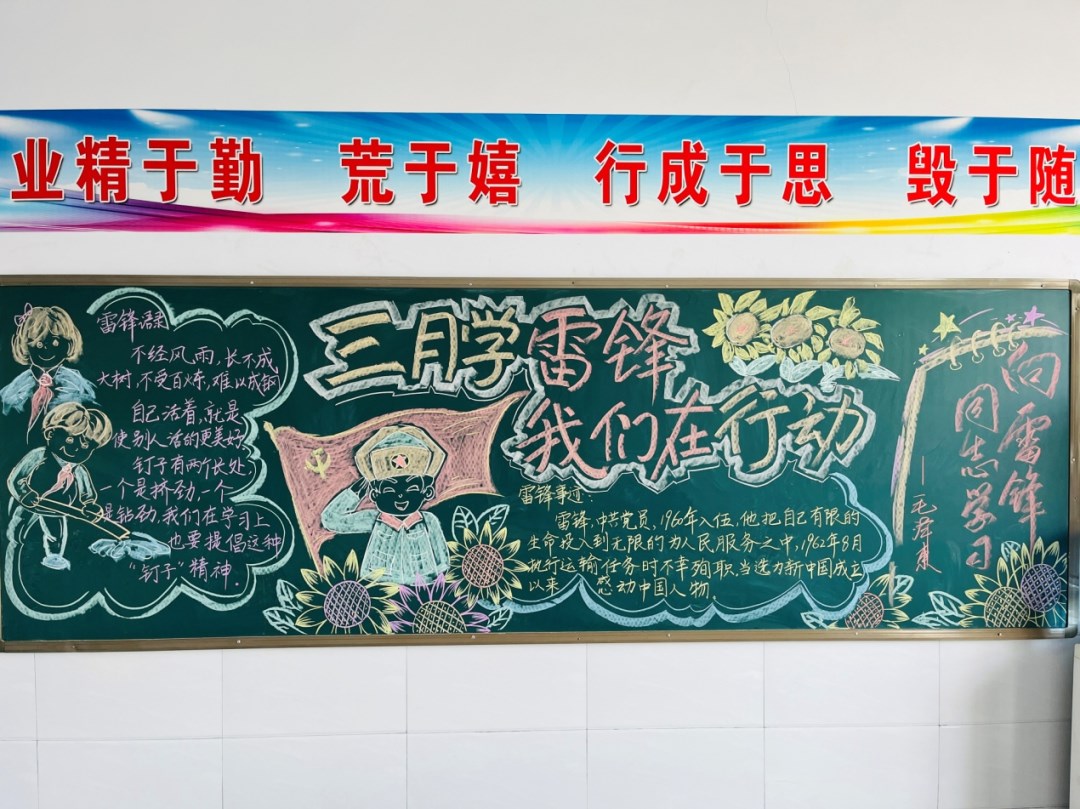 业精于勤 荒于嬉 行成于思 毁于随
三月学雷锋
我们在行动
雷锋语录
不经风雨,长不成
大树,不受百炼,难以成钢
自己活着,就是
使别人活的更美好
钉子有两个长处
一个是挤劲,一个
是钻劲,我们在学习上
也要提倡这种
“钉子”精神.
雷锋事迹:
雷锋,中共党员,1960年入伍,他把自己有限的
生命投入到无限的为人民服务之中,1962年8月
执行运输任务时不幸殉职.当选为新中国成立
以来 感动中国人物.
向雷锋
同志学习
——毛泽东